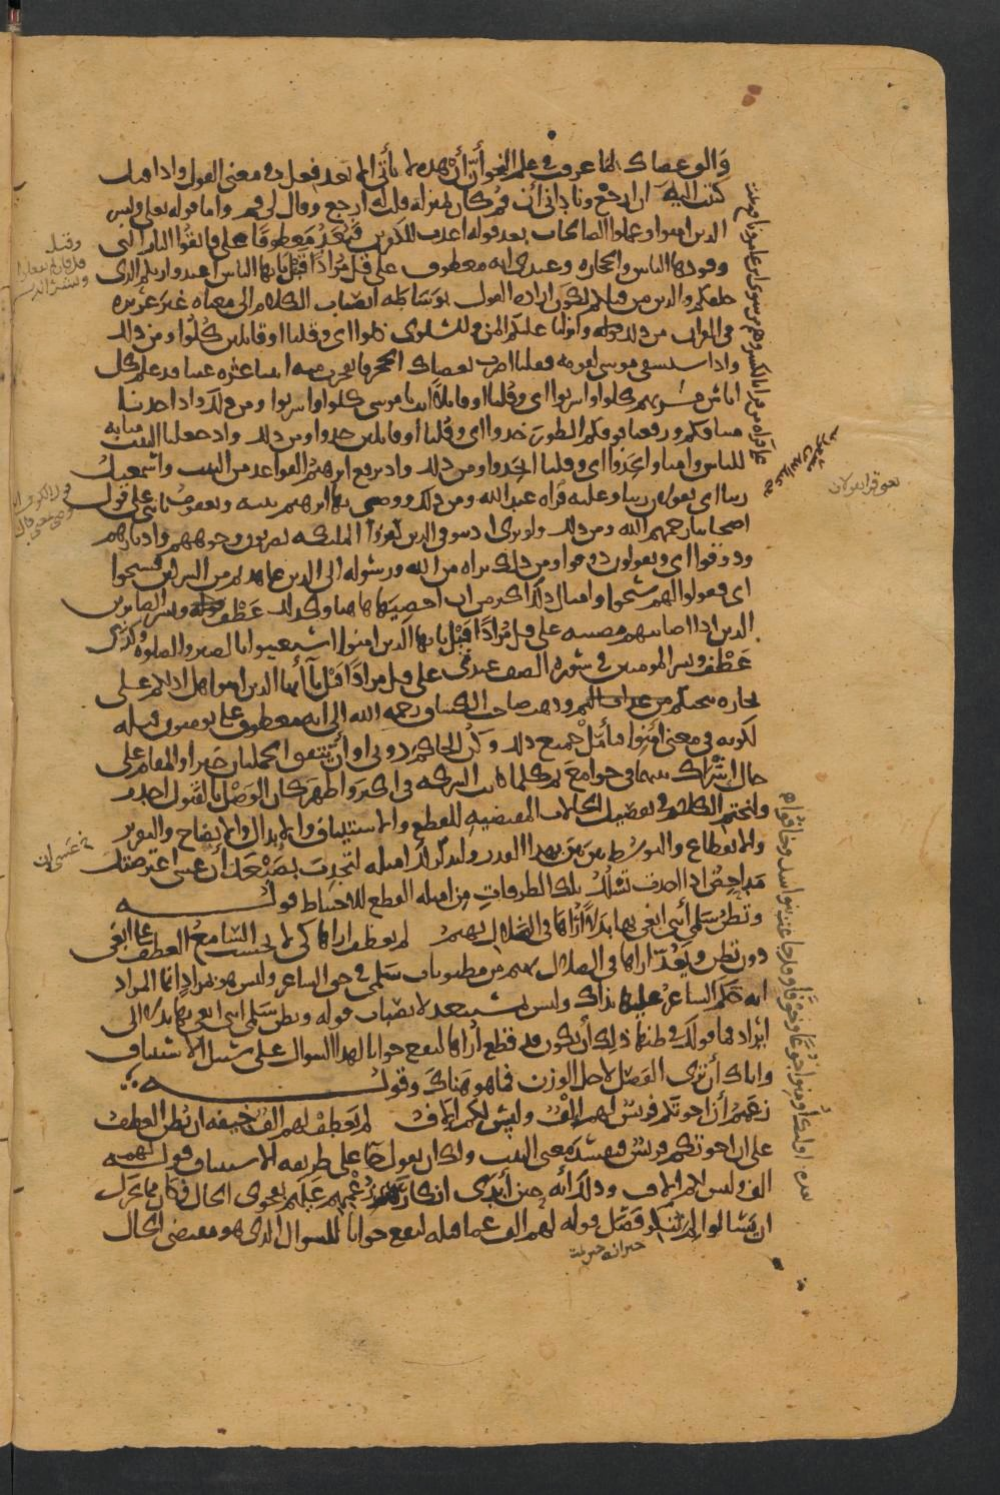 وألق عصاك لما عرفت في علم النحو أن أن هذه لا تأتي إلا بعد فعل في معنى القول واذا قلت
كتبت اليه أن ارجع وناداني أن قم كان بمنزلة قلت له ارجع وقال لي قم واما قوله تعالى وبشر
الذين امنوا وعملوا الصالحات بعد قوله اعدت للكافرين فيعد معطوفا على فاتقوا النار التي
وقودها الناس والحجارة وعندي انه معطوف على قل مرادا قبل يا يها الناس اعبدوا ربكم الذي
خلقكم والذين من قبلكم لكون ارادة القول بوساطة انصباب الكلام الى معناه غير عزيزة
في القرآن من ذلك قوله وانزلنا عليكم المن والسلوى كلوا اي وقلنا او قائلين كلوا ومن ذلك
واذ استسقى موسى لقومه فقلنا اضرب بعصاك الحجر فانفجرت منه اثنتا عشرة عينا قد علم كل
اناس مشربهم كلوا واشربوا اي وقلنا او قائلا انت يا موسى كلوا واشربوا ومن ذلك واذ اخذنا
ميثاقكم ورفعنا فوقكم الطور خذوا اي وقلنا أو قائلين خذوا ومن ذلك واذ جعلنا البيت مثابة
للناس وامنا واتخذوا اي وقلنا اتخذوا ومن ذلك واذ يرفع ابرهيم القواعد من البيت واسمعيل
ربنا اي يقولان ربنا وعليه قراه عبد الله ومن ذلك ووصى بها ابرهيم بنيه ويعقوب يا بني على قول
اصحابنا رحمهم الله ومن ذلك ولو ترى اذ يتوفى الذين كفروا الملئكة يضربون وجوههم وادبارهم
وذوقوا اي ويقولون ذوقوا ومن ذلك براه من الله ورسوله الى الذين عاهدتم من المشركين فسيحوا
اي فقولوا لهم سيحوا وامثال ذلك اكثر من ان احصيها هاهنا وكذلك عطف وبشر الصابرين
الذين اذا اصابتهم مصيبة على قل مرادا قبل يا يها الذين امنوا استعينوا بالصبر والصلوة وكذلك
عطف وبشر المومنين في سورة الصف عندي على قل مرادا قبل يا أيها الذين امنوا هل ادلكم على
تجارة تنجيكم من عذاب اليم وذهب صاحب الكشاف رحمه الله الى انه معطوف على تومنون قبله
لكونه في معنى امنوا فتأمل جميع ذلك وكن الحاكم دوني او أن تتفق الجملتان خبرا والمقام على
حال اشتراك بينهما في جوامع ثم كلما كانت الشركة في اكثر واظهر كان الوصل بالقبول اجدر
ولنختم الكلام في تفصيل الحالات المقتضية للقطع والاستيناف والابدال والايضاح والتقرير
والانقطاع والتوسط بين بين بهذا القدر ولنذكر لك امثلة لتجذب بضبعك أن عسى اعترضتك
مداحض اذا اخذت تسلك تلك الطرقات من امثلة القطع للاحتياط قوله
وتظن سلمى أنني ابغي بها بدلا أراها في الضلال تهيم لم يعطف اراها كي لا يحسب السامع العطف على ابغي
دون تظن ويعد اراها في الضلال تهيم من مظنونات سلمى في حق الشاعر وليس هو بمراد انما المراد
انه حكم الشاعر عليها بذاك وليس بمستبعد لانصباب قوله وتظن سلمى انني ابغي بها بدلا الى
ايراد فما قولك في ظنها ذلك أن يكون قد قطع أراها ليقع جوابا لهذا السوال على سبيل الاستيناف
واياك أن ترى الفصل لاجل الوزن فما هو هناك وقوله
زعمتم أن اخوتكم قريش لهم إلف وليس لكم إلاف لم يعطف لهم الف خيفة ان يظن العطف
على ان اخوتكم قريش فيفسد معنى البيت ولك ان تقول جا على طريقة الاستيناف قوله لهم
الف وليس لكم الاف وذلك أنه حين أبدى انكار زعمهم عليهم بفحوى الحال فكان مما يحرك
ان يسالوا لم تنكر فصل قوله لهم الف عما قبله ليقع جوابا للسوال الذي هو مقتضى الحال